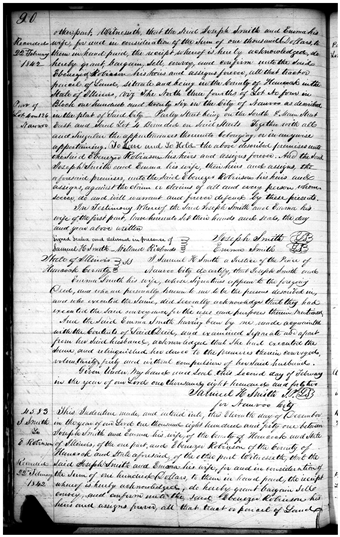 other part, Witnesseth, that the Said Joseph Smith and Emma his
wife, for and in consideration of the Sum of one thousand Dollars, to
them in hand paid, the receipt whereof is hereby acknowledged, do
hereby grant, bargain, Sell, convey, and confirm unto the Said
Ebenezer Robinson his heirs and assigns forever, all that tract or
parcel of Land, Situate and being in the County of Hancock and
State of Illinois, The North three fourths of Lot No four in
Block one hundred and twenty Six in the City of Nauvoo
on the plat of Said City
and Said Lot
and Singular the appurtenances thereunto belonging, or in any wise
appertaining. To Have and To Hold the above described premises unto
the Said Ebenezer Robinson his heirs and assigns forever. And the Said
Joseph Smith and Emma his wife, their heirs and assigns, the
aforesaid premises, unto the Said Ebenezer Robinson his heirs and
assigns, against the claim or claims of all and every person whom
soever, do and will warrant and forever defend by these presents.
In Testimony Whereof the Said Joseph Smith and Emma his
wife of the first part, have hereunto Set their hands and seals, the day
and year above written
Signed Sealed and delivered in presence of Joseph Smith
Samuel H. Smith, Willard Richards Emma Smith
State of Illinois } SS I Samuel H. Smith a Justice of the Peace of
Hancock County Nauvoo City do certify, that Joseph Smith and
Emma Smith his wife, whose Signatures appears to the foregoing
Deed, and who are personally known to me to be the persons described in,
and who executed the Same, did severally acknowledge that they had
executed the Said conveyance for the uses and purposes therein mentioned,
And the Said Emma Smith having been by me made acquainted
with the contents of Said Deed, and examined Separate and apart
from her Said husband, acknowledged that She had executed the
Same, and relinquished her dower to the premises therein conveyed,
voluntarily, freely and without compulsion of her Said husband.
Given Under My hand and Seal this second day of February
in the year of our Lord one thousand eight hundred and forty two
Samuel H. Smith J.P.
for Nauvoo City
This Indenture, made and entered into, this Eleventh day of December
J Smith in the year of our Lord one thousand eight hundred and forty one between
To Joseph Smith and Emma his wife, of the County of Hancock and State
E Robinson of Illinois, of the one part, and Ebenezer Robinson of the County of
Hancock and State aforesaid, of the other part Witnesseth, that the
Said Joseph Smith and Emma his wife, for and in consideration of
the Sum of one hundred Dollars, to them in hand paid, the receipt
1842 whereof is hereby acknowledged, do hereby grant, bargain, Sell,
convey, and confirm unto the Said Ebenezer Robinson his
heirs and assigns forever, all that tract or parcel of Land